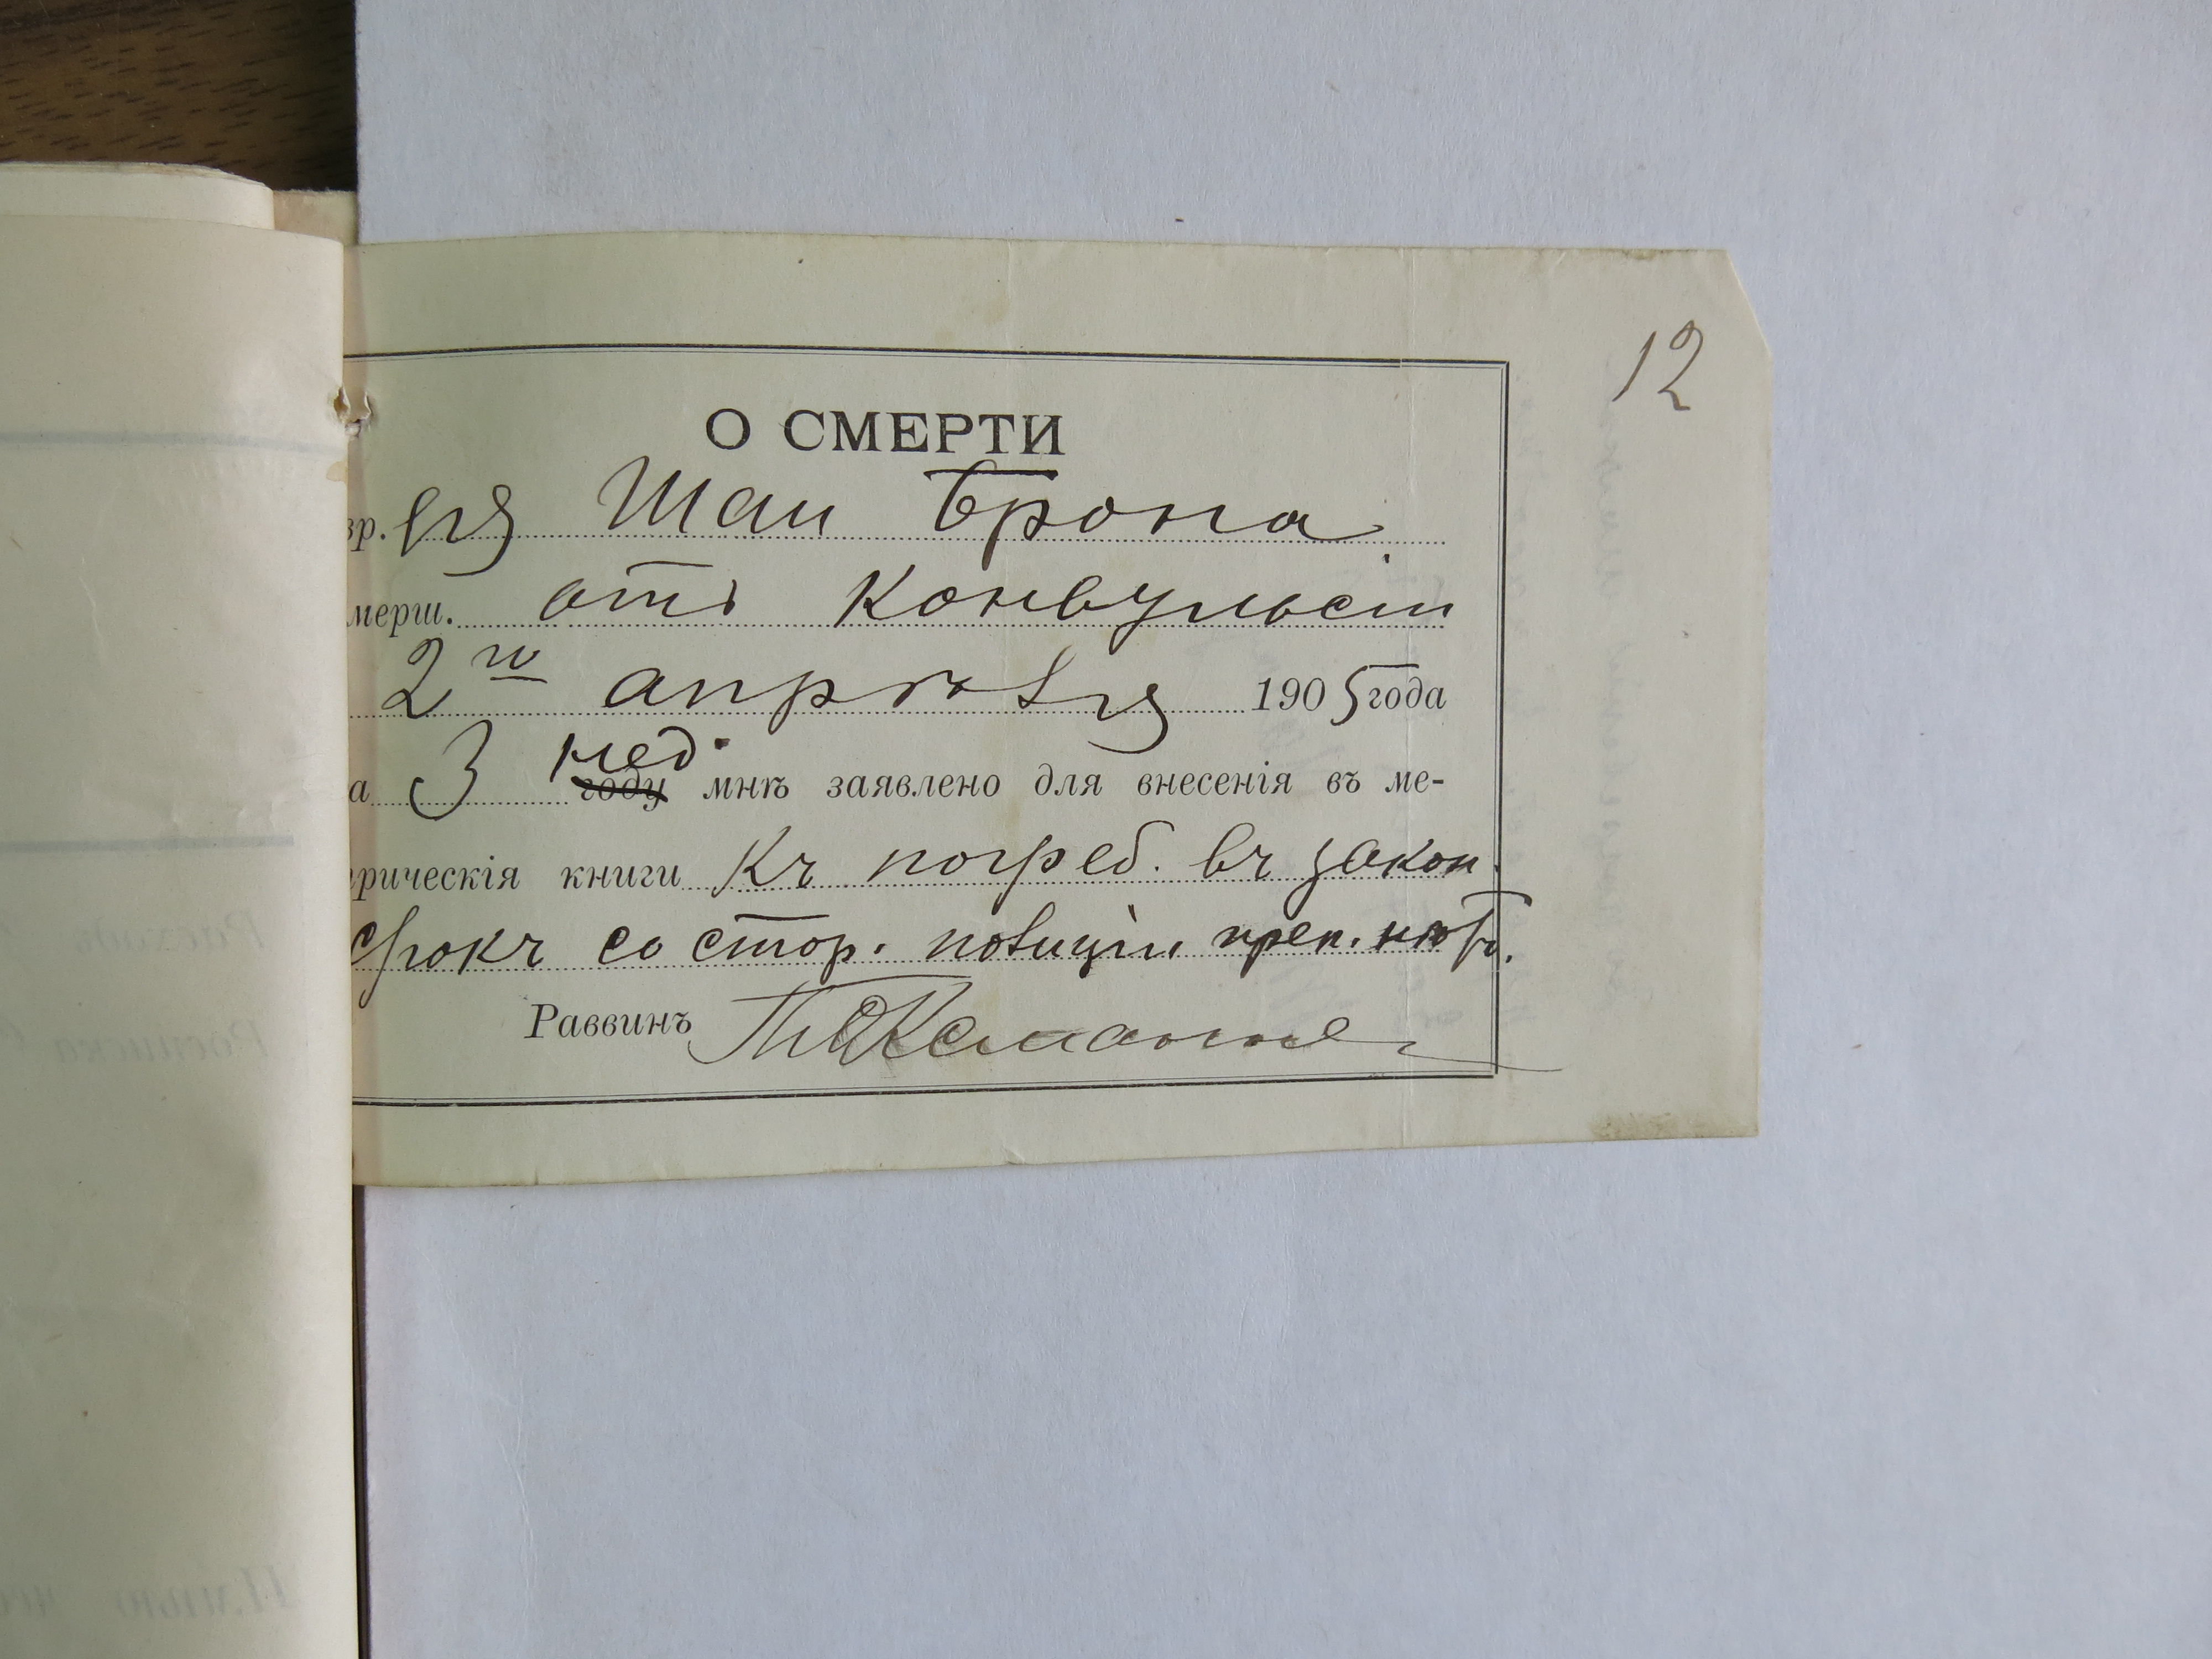 12
О СМЕРТИ
вр. ея Шаи Брона
мерш. отъ конвульсіи
2го апрѣля 1905 года
а 3 нед. году мнѣ заявлено для внесенія въ ме-
рическія книги Къ погреб. въ закон.
срокъ со стор. полиціи преп. нѣтъ.
Раввинъ